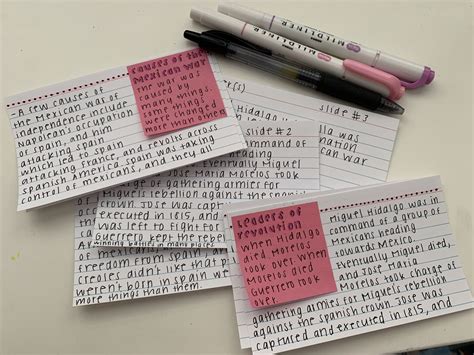 MILDLINER
MILDLINER
causes of the
Mexican war
the war was
caused by
many things.
some things
were changed
more than other
A few causes of
the Mexican war of
independence include
Napoleon's occupation
of spain, and him
attacking spain
which led to spain
attacking France, and revolts across
spanish America. spain was taking
control of mexicans, and they all
Hidalgo
slide #3
was
war
slide #2
command of
heading
Eventually Miguel
Jose Maria Morelos took
of gathering armies for
Miguel's rebellion against the
spanish crown. Jose was
executed in 1815, and
was left to fight for
Guerrero kept the
winning battles in many places
freedom from spain,
creoles didn't like that
weren't born in spain
more things than them.
Leaders of
revolution
when Hidalgo
died, Morelos
took over. when
Morelos died
Guerrero took
over.
Miguel Hidalgo was in
command of a group of
Mexicans heading
towards Mexico.
Eventually Miguel died,
and Jose Maria
Morelos took charge of
gathering armies for Miguels rebellion
against the spanish crown. Jose was
captured and executed in 1815, and